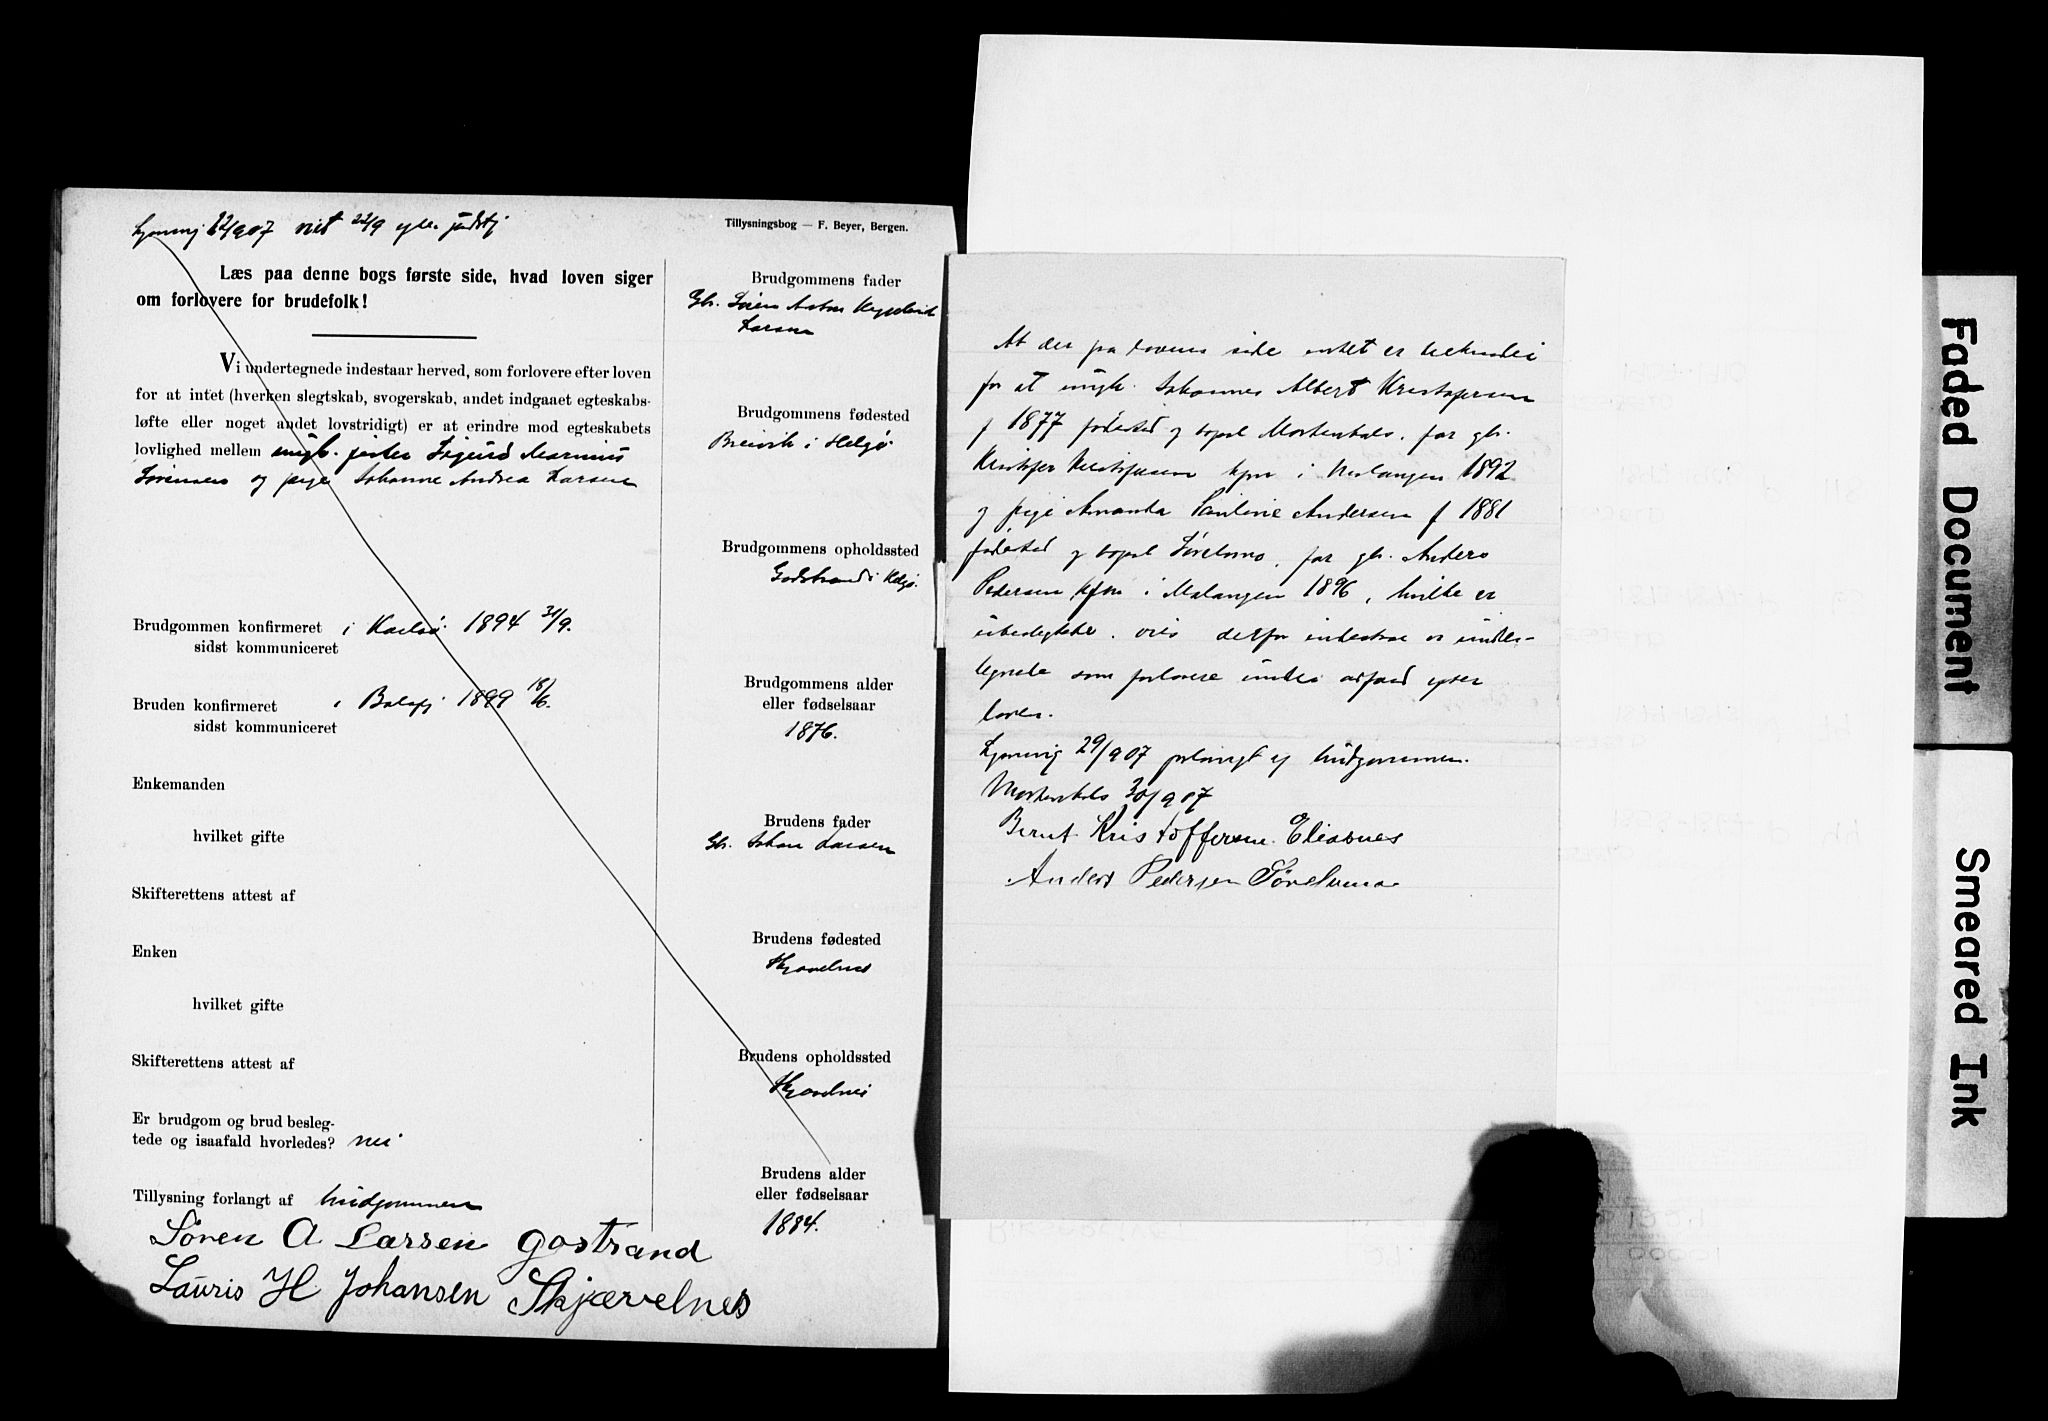 22/907 vist 22/9
Tillysningsbog — F. Beyer, Bergen.
Læs paa denne bogs første side, hvad loven siger
om forlovere for brudefolk!
Vi undertegnede indestaar herved, som forlovere efter loven
for at intet (hverken slegtskab, svogerskab, andet indgaaet egteskabs-
løfte eller noget andet lovstridigt) er at erindre mod egteskabets
lovlighed mellem ungk. Sigurd Marinius
Sørensen og pige Johanne Andrea Larsen
Brudgommen konfirmeret i Karlsø 1894 30/9.
sidst kommuniceret
Bruden konfirmeret i Balsfj 1899 18/6.
sidst kommuniceret
Enkemanden
hvilket gifte
Skifterettens attest af
Enken
hvilket gifte
Skifterettens attest af
Er brudgom og brud besleg-
tede og isaafald hvorledes? nei
Tillysning forlangt af brudgommen
Søren A Larsen Gostrand
Lauris H Johansen Skjærvelnes
Brudgommens fader
Gb. Søren Anton
Larsen
Brudgommens fødested
Breivik i Helgø
Brudgommens opholdssted
Godstrand i Helgø.
Brudgommens alder
eller fødselsaar
1876.
Brudens fader
Gb. Johan Larsen
Brudens fødested
Skjavelnes
Brudens opholdssted
Skjavelnes
Brudens alder
eller fødselsaar
1884.
At der paa lovens side intet er
for at ungk. Johannes Albert Kristofersen
f 1877 fødested og bopæl Mortenhals, far gb.
Kristofer Kristofersen kfm i Malangen 1892
og pige Amanda Pauline Andersen f 1881
fødested og bopæl Sørelvmo, far gb. Anders
Pedersen kfm i Malangen 1896, hvilke er
ubeslegtede. derfor indestaar vi under-
tegnede som forlovere under ansvar efter
loven.
29/907 forlangt af brudgommen.
Mortenhals 30/907
Bernt Kristoffersen Eliasnes
Anders Pedersen Sørelvmo
Faded Document
Smeared Ink